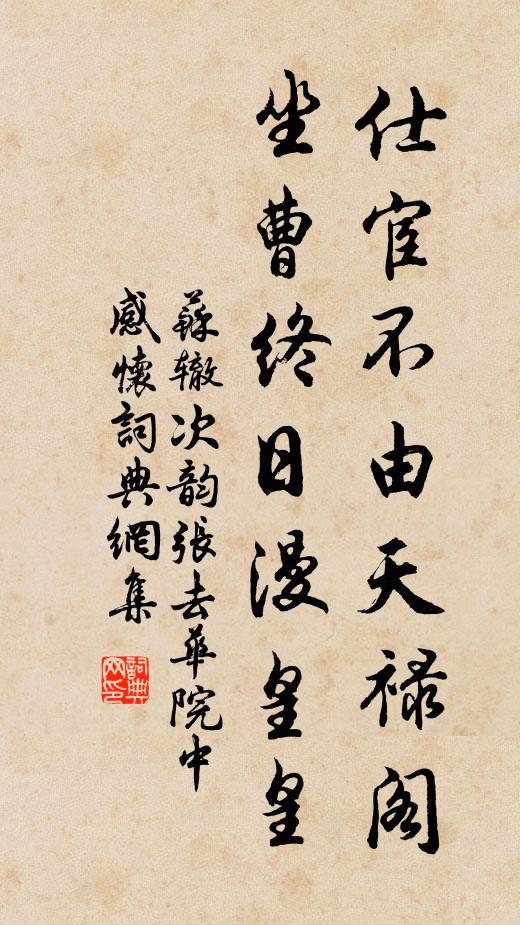 仕宦不由天禄阁
坐曹终日漫皇皇
蘇辙次韵張去華院中
感懷詞典網集
詞典网印